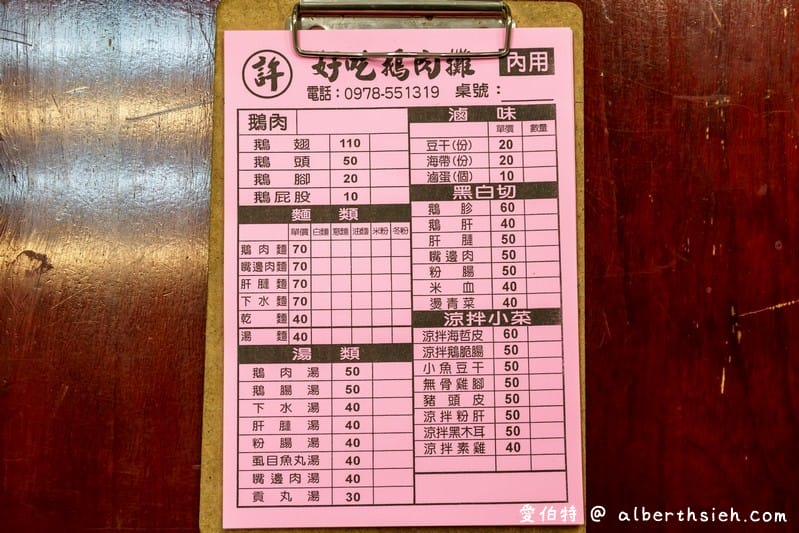 許 好吃鵝肉攤 內用
電話：0978-551319 桌號：
鵝肉
鵝翅 110
鵝頭 50
鵝腳 20
鵝屁股 10
麵類
單價 白麵 意麵 油麵 米粉 冬粉
鵝肉麵 70
嘴邊肉麵 70
肝腱麵 70
下水麵 70
乾麵 40
湯麵 40
湯類
鵝肉湯 50
鵝腸湯 50
下水湯 40
肝腱湯 40
粉腸湯 40
虱目魚丸湯 40
嘴邊肉湯 40
貢丸湯 30
滷味
單價 數量
豆干(份) 20
海帶(份) 20
滷蛋(個) 10
黑白切
鵝胗 60
鵝肝 40
肝腱 50
嘴邊肉 50
粉腸 50
米血 40
燙青菜 40
涼拌小菜
涼拌海哲皮 60
涼拌鵝脆腸 50
小魚豆干 50
無骨雞腳 50
豬頭皮 50
涼拌粉肝 50
涼拌黑木耳 50
涼拌素雞 40
愛伯特 @ alberthsieh.com